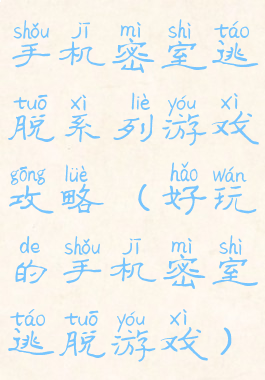 shǒu jī mì shì táo
手机密室逃
tuō xì liè yóu xì
脱系列游戏
gōng lüè hǎo wán
攻略（好玩
de shǒu jī mì shì
的手机密室
táo tuō yóu xì
逃脱游戏）